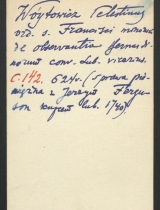 Wójtowicz Celestinus
ord. s. Francisci minorum
de observantia
conv. Lub. vicarius.
C. 142. 624v. (sprawa pie-
niężna z Jerzym Fergu-
son kupcem lub. 1740).